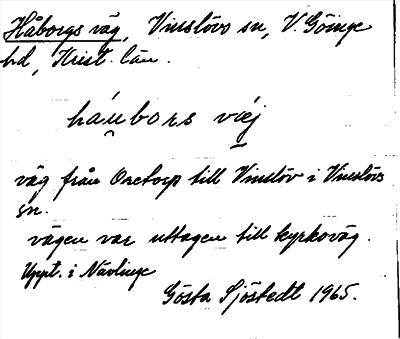 Håborgs väg, Vinslövs sn, V. Göinge
hd, Krist. län.
háu̯bors väj
väg från Oretorp till Vinslöv i Vinslövs
sn.
vägen var uttagen till kyrkoväg.
Uppt. i Nävlinge
Gösta Sjöstedt 1965.